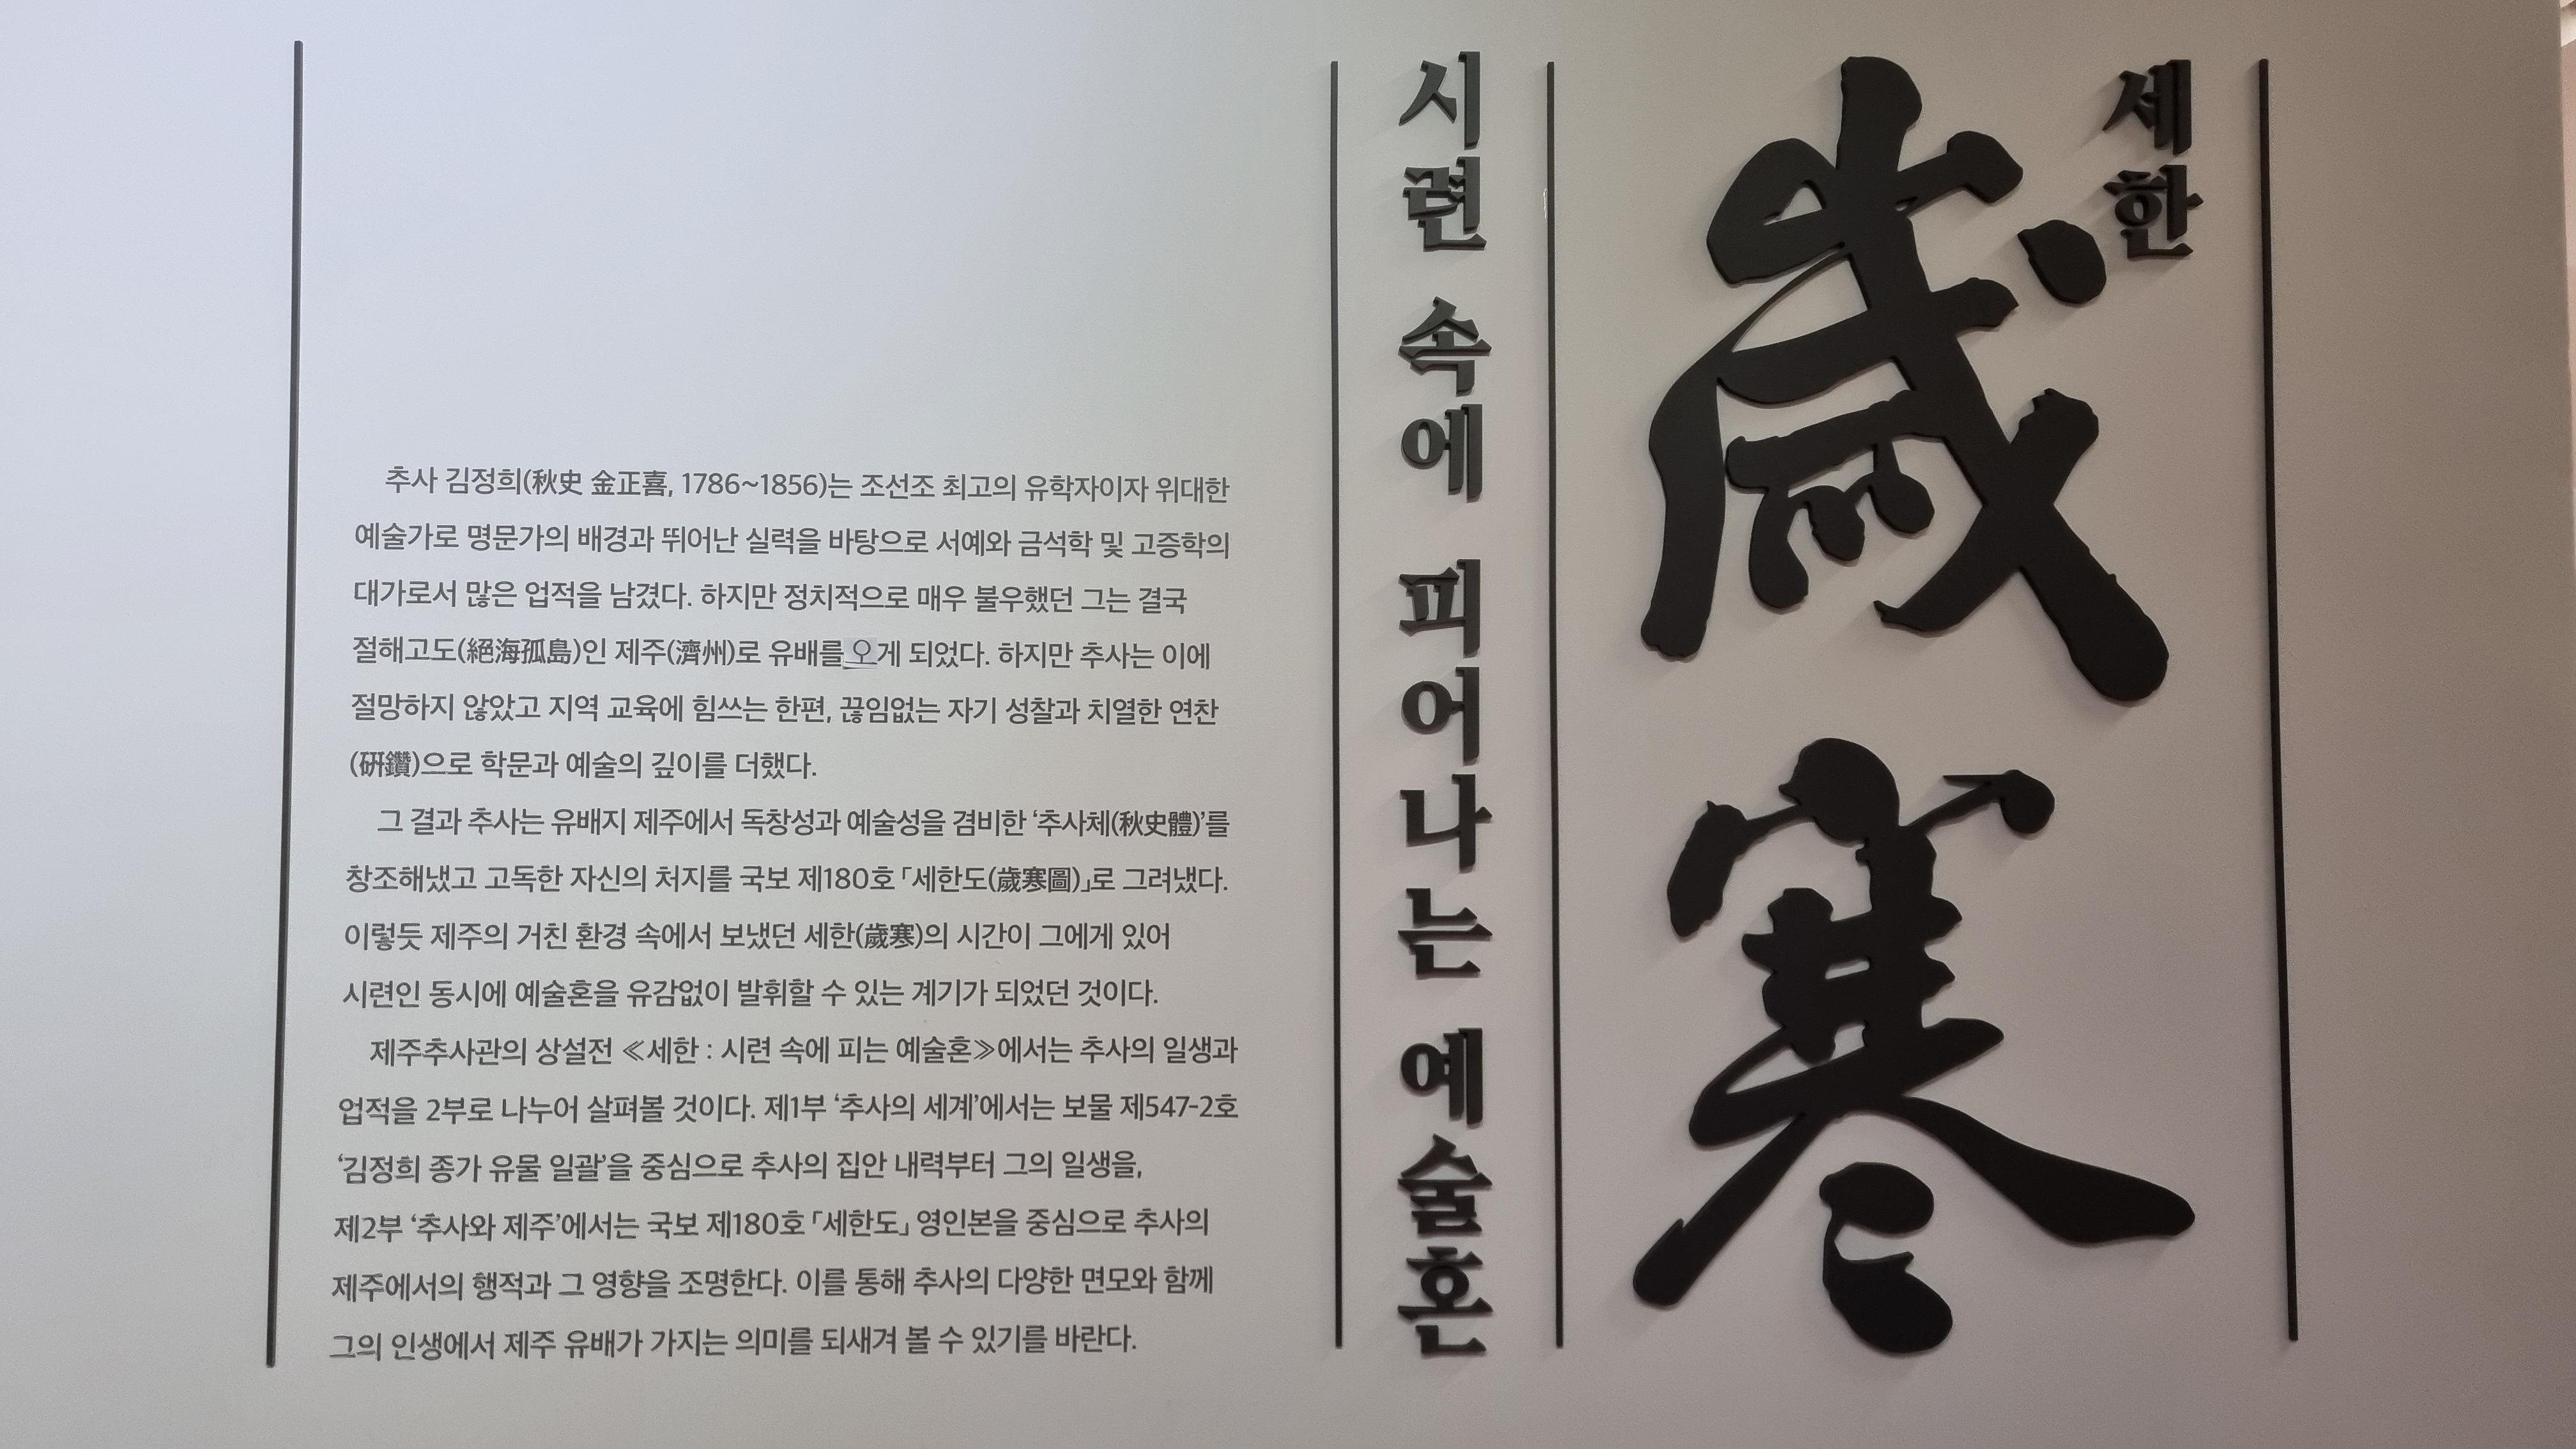 세한
歲寒
시련 속에 피어나는 예술혼
추사 김정희(秋史 金正喜, 1786~1856)는 조선조 최고의 유학자이자 위대한
예술가로 명문가의 배경과 뛰어난 실력을 바탕으로 서예와 금석학 및 고증학의
대가로서 많은 업적을 남겼다. 하지만 정치적으로 매우 불우했던 그는 결국
절해고도(絕海孤島)인 제주(濟州)로 유배를 오게 되었다. 하지만 추사는 이에
절망하지 않았고 지역 교육에 힘쓰는 한편, 끊임없는 자기 성찰과 치열한 연찬
(硏鑽)으로 학문과 예술의 깊이를 더했다.
그 결과 추사는 유배지 제주에서 독창성과 예술성을 겸비한 ‘추사체(秋史體)’를
창조해냈고 고독한 자신의 처지를 국보 제180호 ｢세한도(歲寒圖)｣로 그려냈다.
이렇듯 제주의 거친 환경 속에서 보냈던 세한(歲寒)의 시간이 그에게 있어
시련인 동시에 예술혼을 유감없이 발휘할 수 있는 계기가 되었던 것이다.
제주추사관의 상설전 ≪세한 : 시련 속에 피는 예술혼≫에서는 추사의 일생과
업적을 2부로 나누어 살펴볼 것이다. 제1부 ‘추사의 세계’에서는 보물 제547-2호
‘김정희 종가 유물 일괄’을 중심으로 추사의 집안 내력부터 그의 일생을,
제2부 ‘추사와 제주’에서는 국보 제180호 ｢세한도｣ 영인본을 중심으로 추사의
제주에서의 행적과 그 영향을 조명한다. 이를 통해 추사의 다양한 면모와 함께
그의 인생에서 제주 유배가 가지는 의미를 되새겨 볼 수 있기를 바란다.